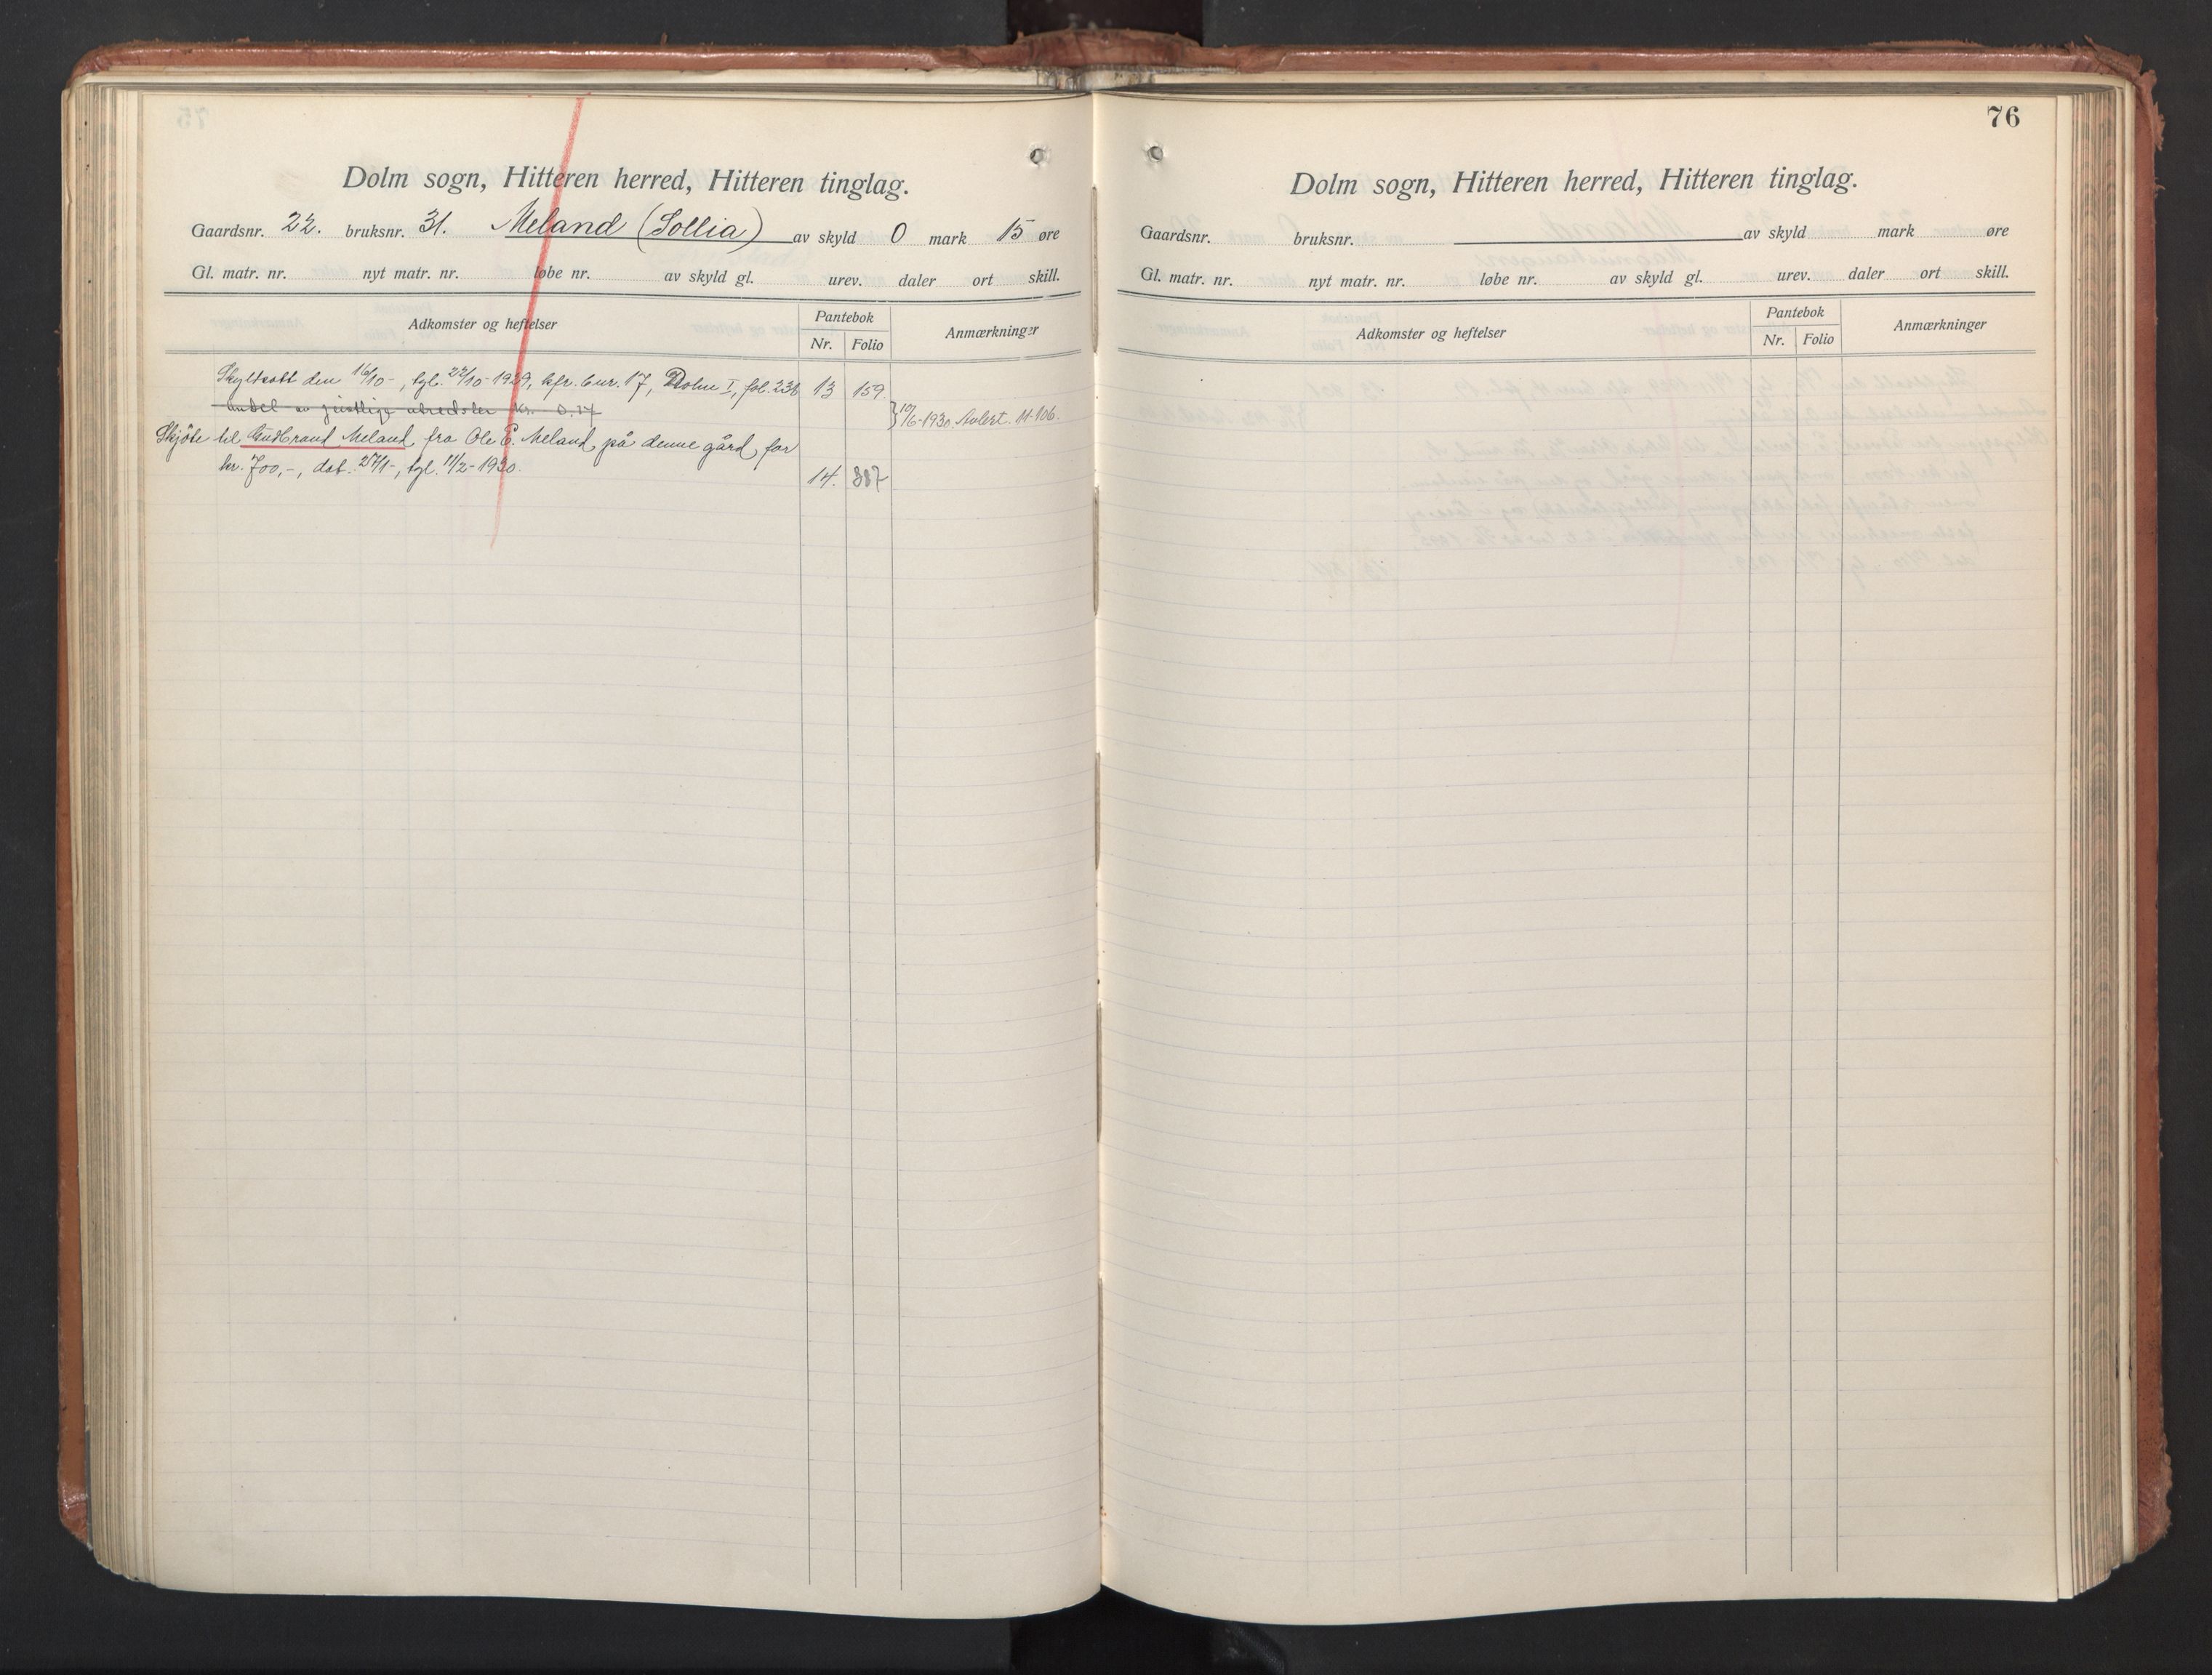 Dolm sogn, Hitteren herred, Hitteren tinglag.
Gaardsnr. 22. bruksnr. 31. Meland (Sollia) av skyld 0 mark 15 øre
Gl. matr. nr. nyt matr. nr. løbe nr. av skyld gl. urev. daler ort skill.
Adkomster og heftelser Pantebok Anmærkninger
Nr. Folio
Skyltsatt den 16/10-, tgl. 22/10-1929, kfr. bnr. 17, Dolm I, fol. 238 13 159
Andel av geistlige utredsler kr. 0.14
10/6-1930. Avlest. 11-106.
Skjöte til Gudbrand Meland fra Ole E. Meland på denne gård for
kr. 700,-, dat. 27/1-, tgl. 11/2-1930. 14. 387
76
Dolm sogn, Hitteren herred, Hitteren tinglag.
Gaardsnr. bruksnr. av skyld mark øre
Gl. matr. nr. nyt matr. nr. løbe nr. av skyld gl. urev. daler ort skill.
Adkomster og heftelser Pantebok Anmærkninger
Nr. Folio